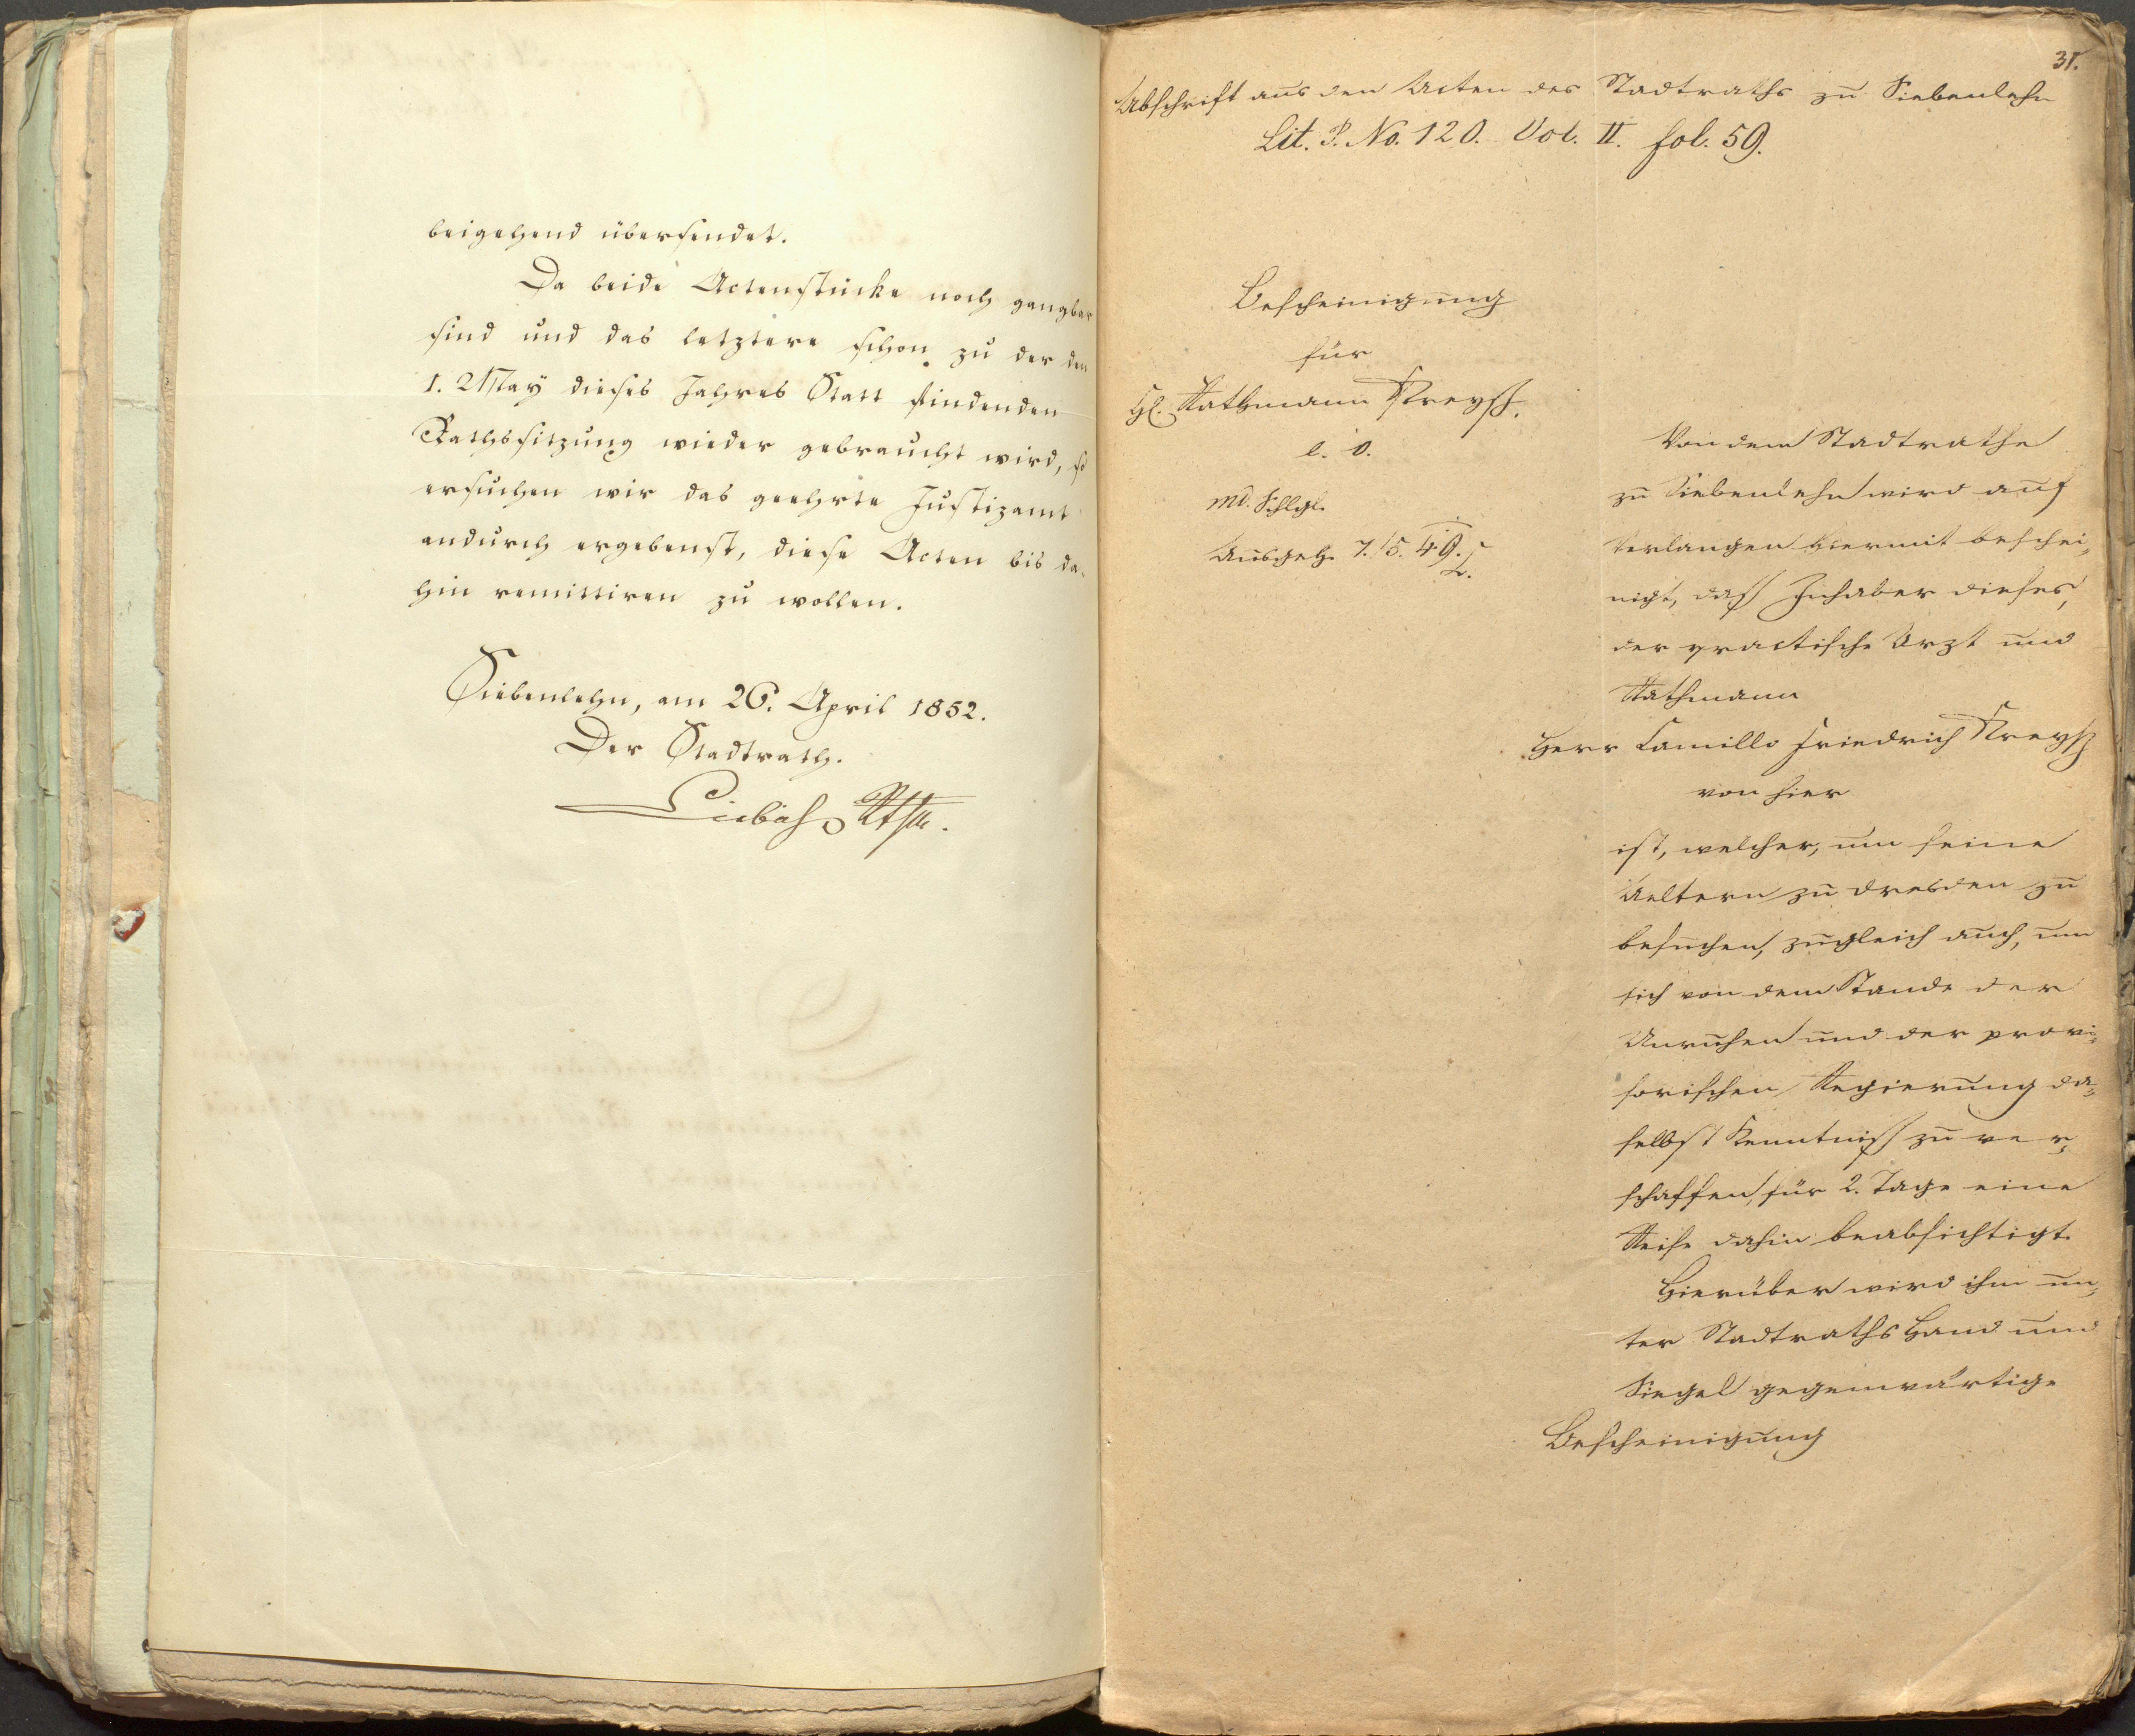 beigehend übersendet.
Da beide Actenstücke noch gangbar
sind und das letztere schon zu der den
1. May dieses Jahres Statt findenden
Rathssitzung wieder gebraucht wird, so
ersuchen wir das geehrte Justizamt
andurch ergebenst, diese Acten bis da-
hin remittiren zu wollen.
Siebenlehn, am 26. April 1852.
Der Stadtrath.
31.
Abschrift aus den Acten des Stadtraths zu Siebenlehn
Lit. P. No. 120. Vol. II. fol. 59.
Bescheinigung
für
H. Rathmann Kreyß.
l. s.
Ausgeh. 7./5. 49.
Von dem Stadtrathe
zu Siebenlehn wird auf
Verlangen hiermit beschei-
nigt, daß Inhaber dieses,
der practische Arzt und
Rathmann
Herr Camillo Friedrich Kreyß
von hier
ist, welcher, um seine
Aeltern zu Dresden zu
besuchen, zugleich auch, um
sich von dem Stande der
Unruhen und der provi-
sorischen Regierung da-
selbst Kenntniß zu ver-
schaffen, für 2. Tage eine
Reise dahin beabsichtigt.
Hierüber wird ihm un-
ter Stadtraths Hand und
Siegel gegenwärtige
Bescheinigung